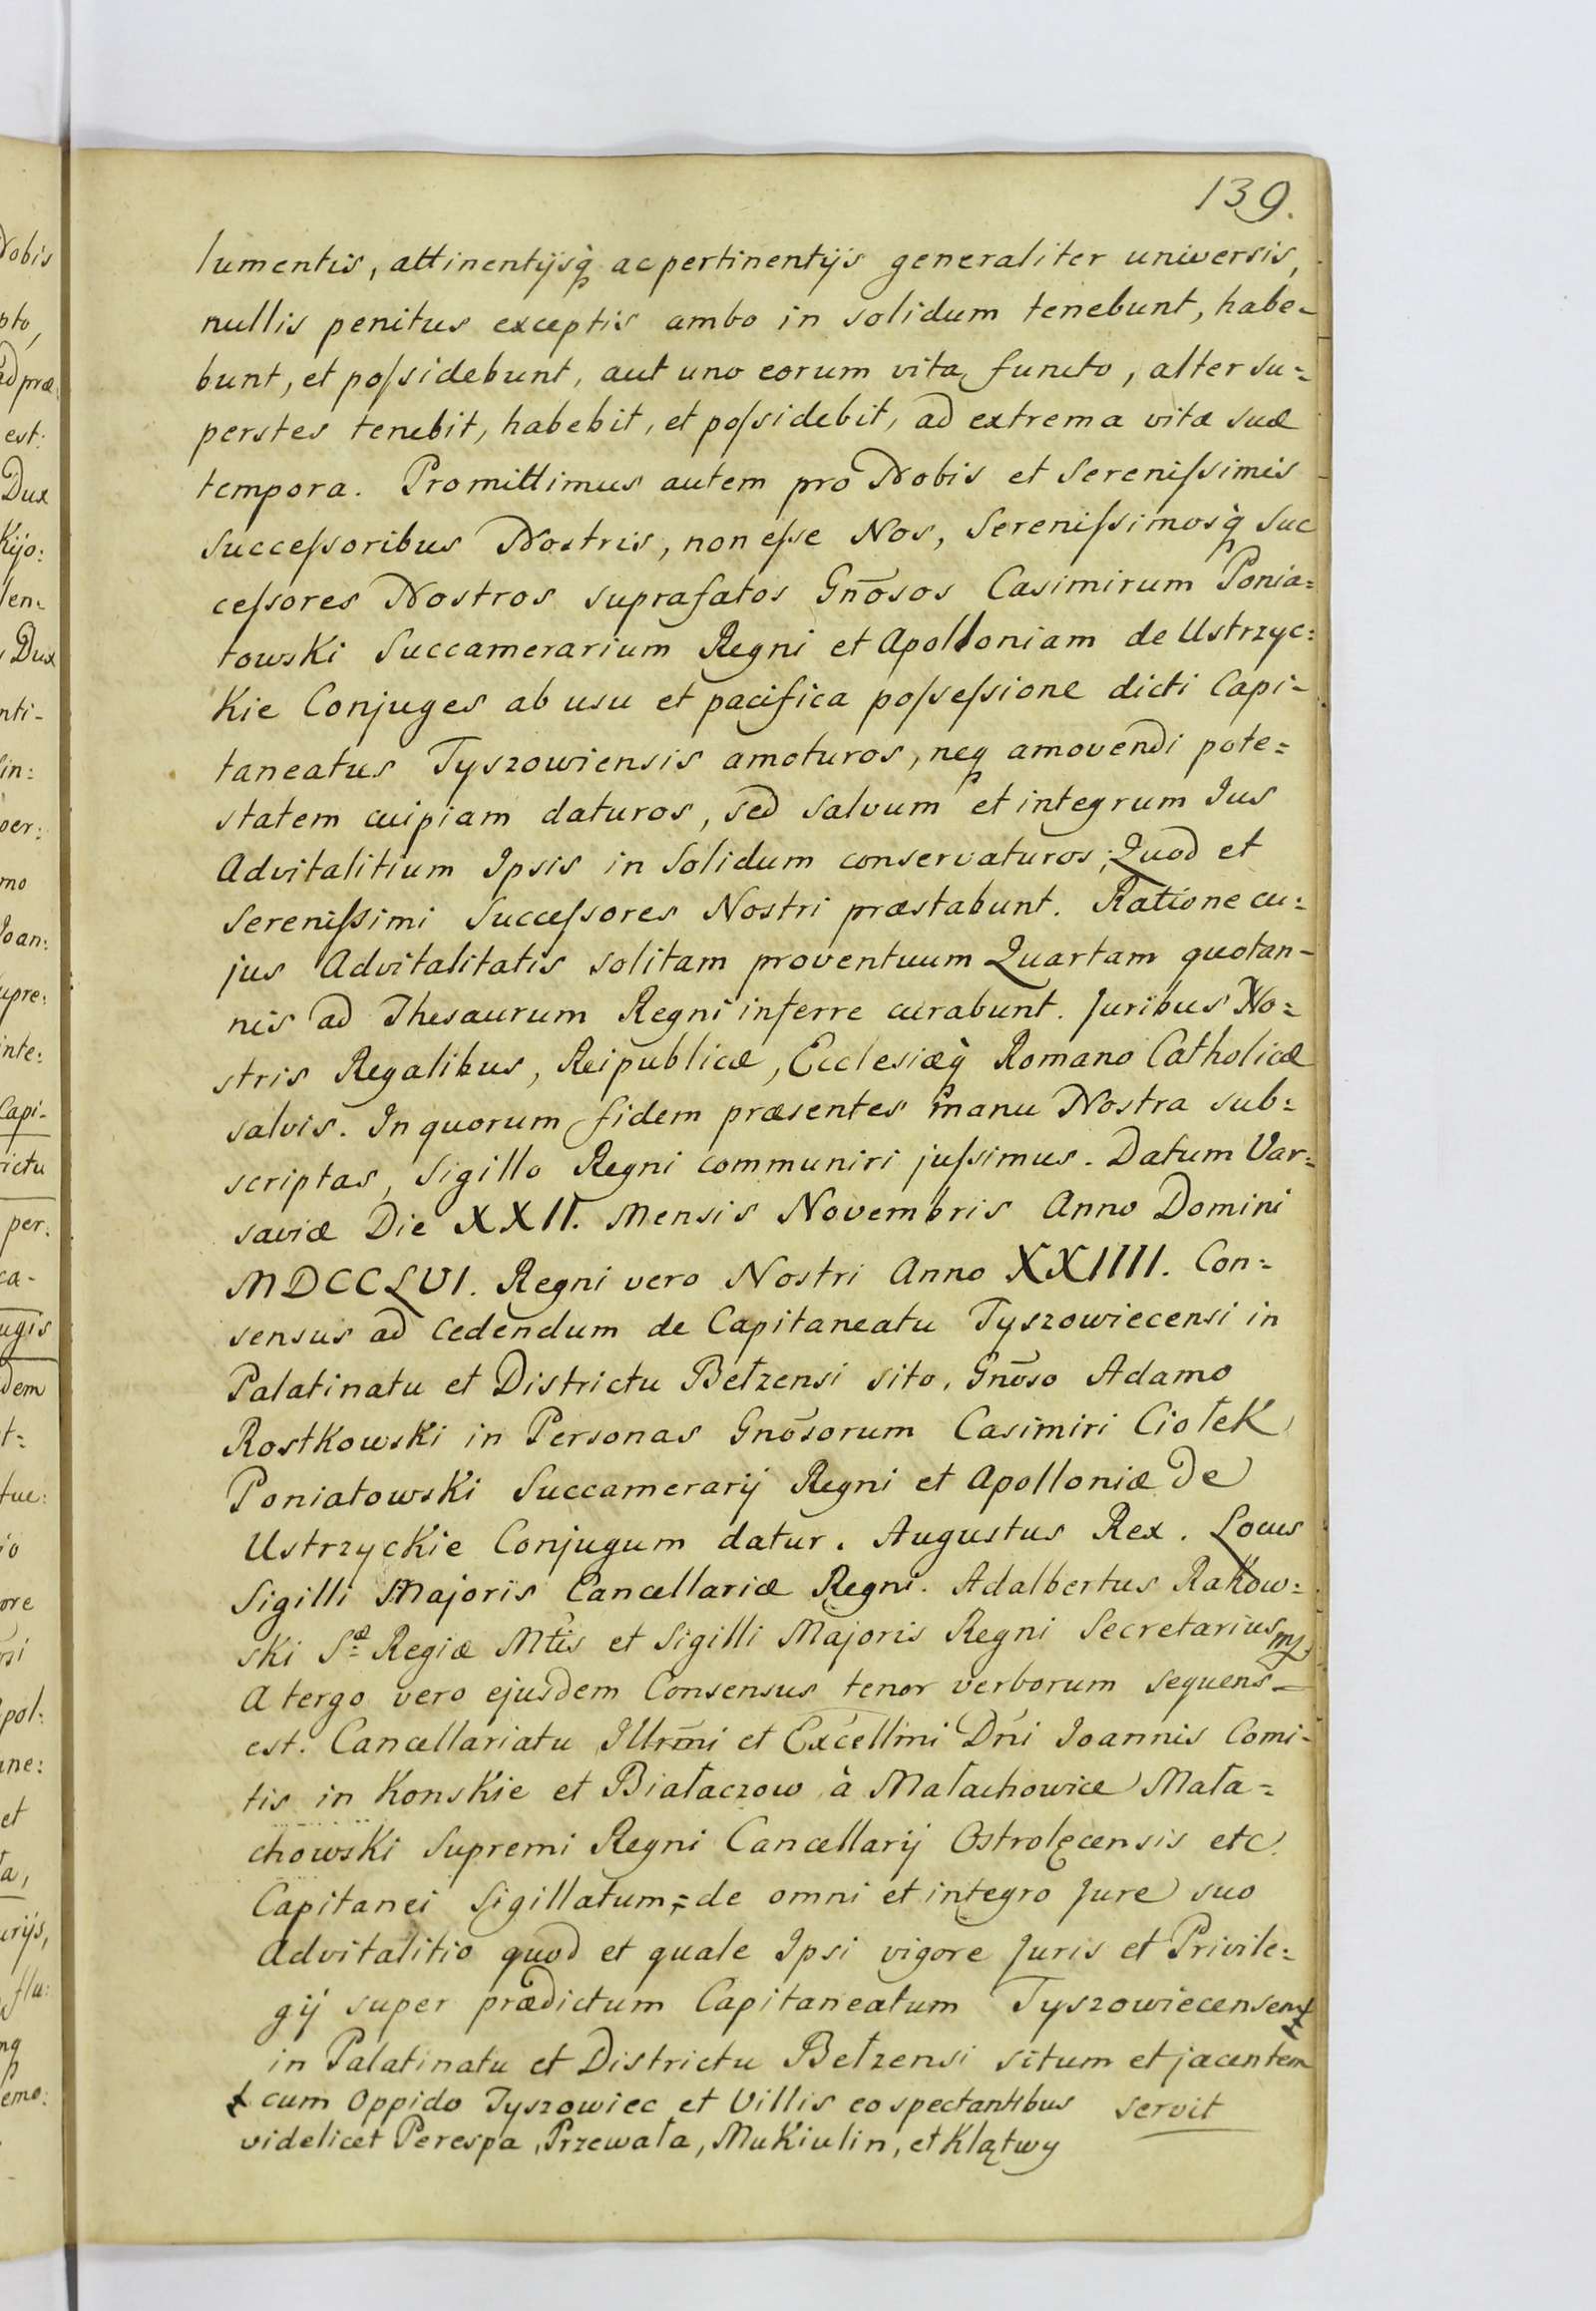 139.
lumentis, attinentijsq̀ ac pertinentijs generaliter universis,
nullis penitus exceptis ambo in solidum tenebunt, habe-
bunt, et poſsidebunt, aut uno eorum vita functo, alter su=
perstes tenebit, habebit, et poſsidebit, ad extrema vitæ suæ
tempora. Promittimus autem pro Nobis et Sereniſsimis
Succeſsoribus Nostris, non eſse Nos, Sereniſsimosq̀ Suc
ceſsores Nostros suprafatos Gnōsos Casimirum Ponia=
towski Succamerarium Regni et Apolloniam de Ustrzyc=
kie Conjuges ab usu et pacifica poſseſsione dicti Capi-
taneatus Tyszowiensis amoturos, neq amovendi pote=
statem cuipiam daturos, sed salvum et integrum Jus
Advitalitium Ipsis in Solidum conservaturos; Quod et
Sereniſsimi Succeſsores Nostri præstabunt. Ratione cu=
jus Advitalitatis solitam proventuum Quartam quotan-
nis ad Thesaurum Regni inferre curabunt. Juribus No=
stris Regalibus, Reipublicæ, Ecclesiæq̀ Romano Catholicæ
salvis. In quorum fidem præsentes manu Nostra sub=
scriptas, Sigillo Regni communiri juſsimus. Datum Var=
saviæ Die XXII. Mensis Novembris Anno Domini
MDCCLVI. Regni vero Nostri Anno XXIIII. Con=
sensus ad Cedendum de Capitaneatu Tyszowiecensi in
Palatinatu et Districtu Bełzensi sito, Gnōso Adamo
Rostkowski in Personas Gnōsorum Casimiri Ciołek
Poniatowski Succamerarij Regni et Apolloniæ de
Ustrzyckie Conjugum datur. Augustus Rex. Locus
Sigilli Majoris Cancellariæ Regni. Adalbertus Rakow=
ski Sæ Regiæ Mtis et Sigilli Majoris Regni Secretarius mp
A tergo vero ejusdem Consensus tenor verborum sequens
est. Cancellariatu Illrm̄i et Excellmi Dn̄i Joannis Comi-
tis in Konskie et Białaczow à Małachowice Mała=
chowski Supremi Regni Cancellarij Ostrolęcensis etc.
Capitanei Sigillatum;= de omni et integro Jure suo
Advitalitio quod et quale Ipsi vigore Juris et Privile=
gij super prædictum Capitaneatum Tyszowiecensem
in Palatinatu et Districtu Bełzensi situm et jacentem
cum Oppido Tyszowiec et Villis eo spectantibus servit
videlicet Perespa, Przewała, Mukiulin, et Klątwy